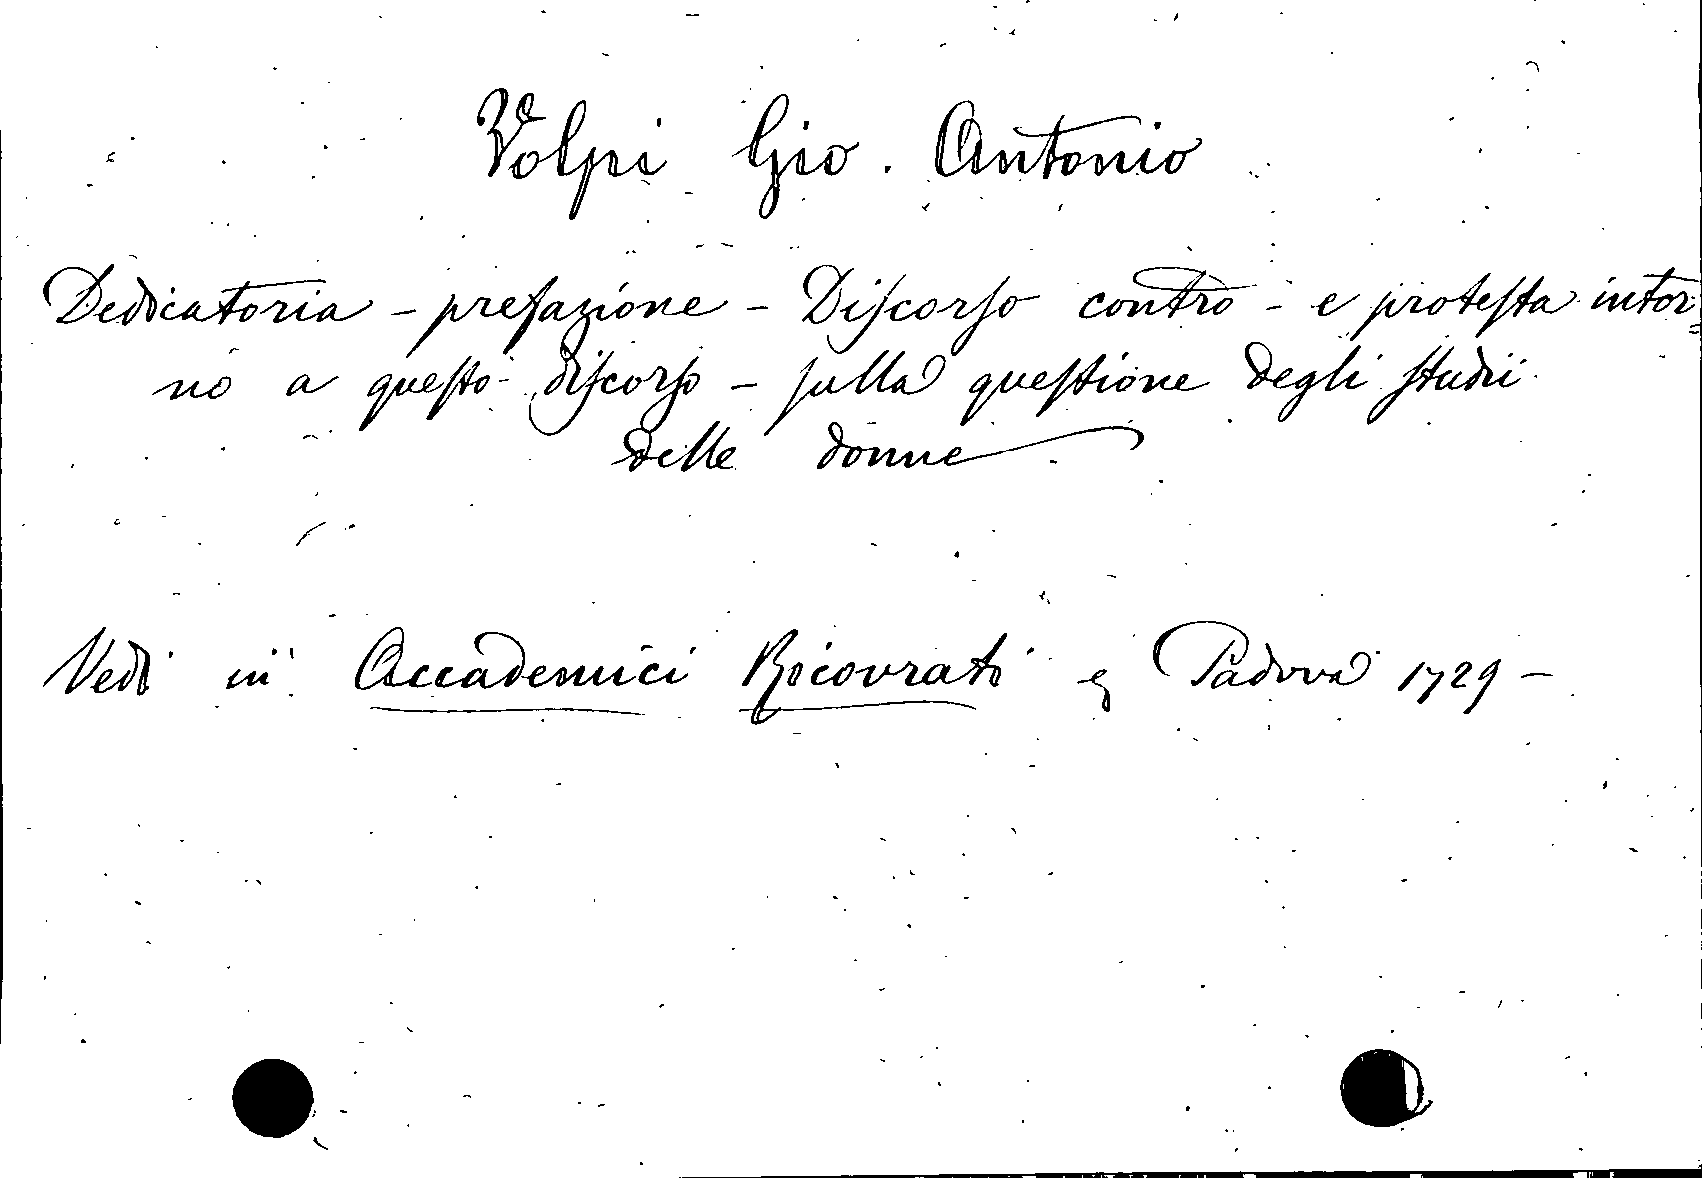 Volpi Gio. Antonio
Dedicatoria - prefazione - Discorso contro - e protesta intor=
no a questo discorso - sulla questione degli studii
delle donne
Vedi in Accademici Ricovrati Padova 1729 -